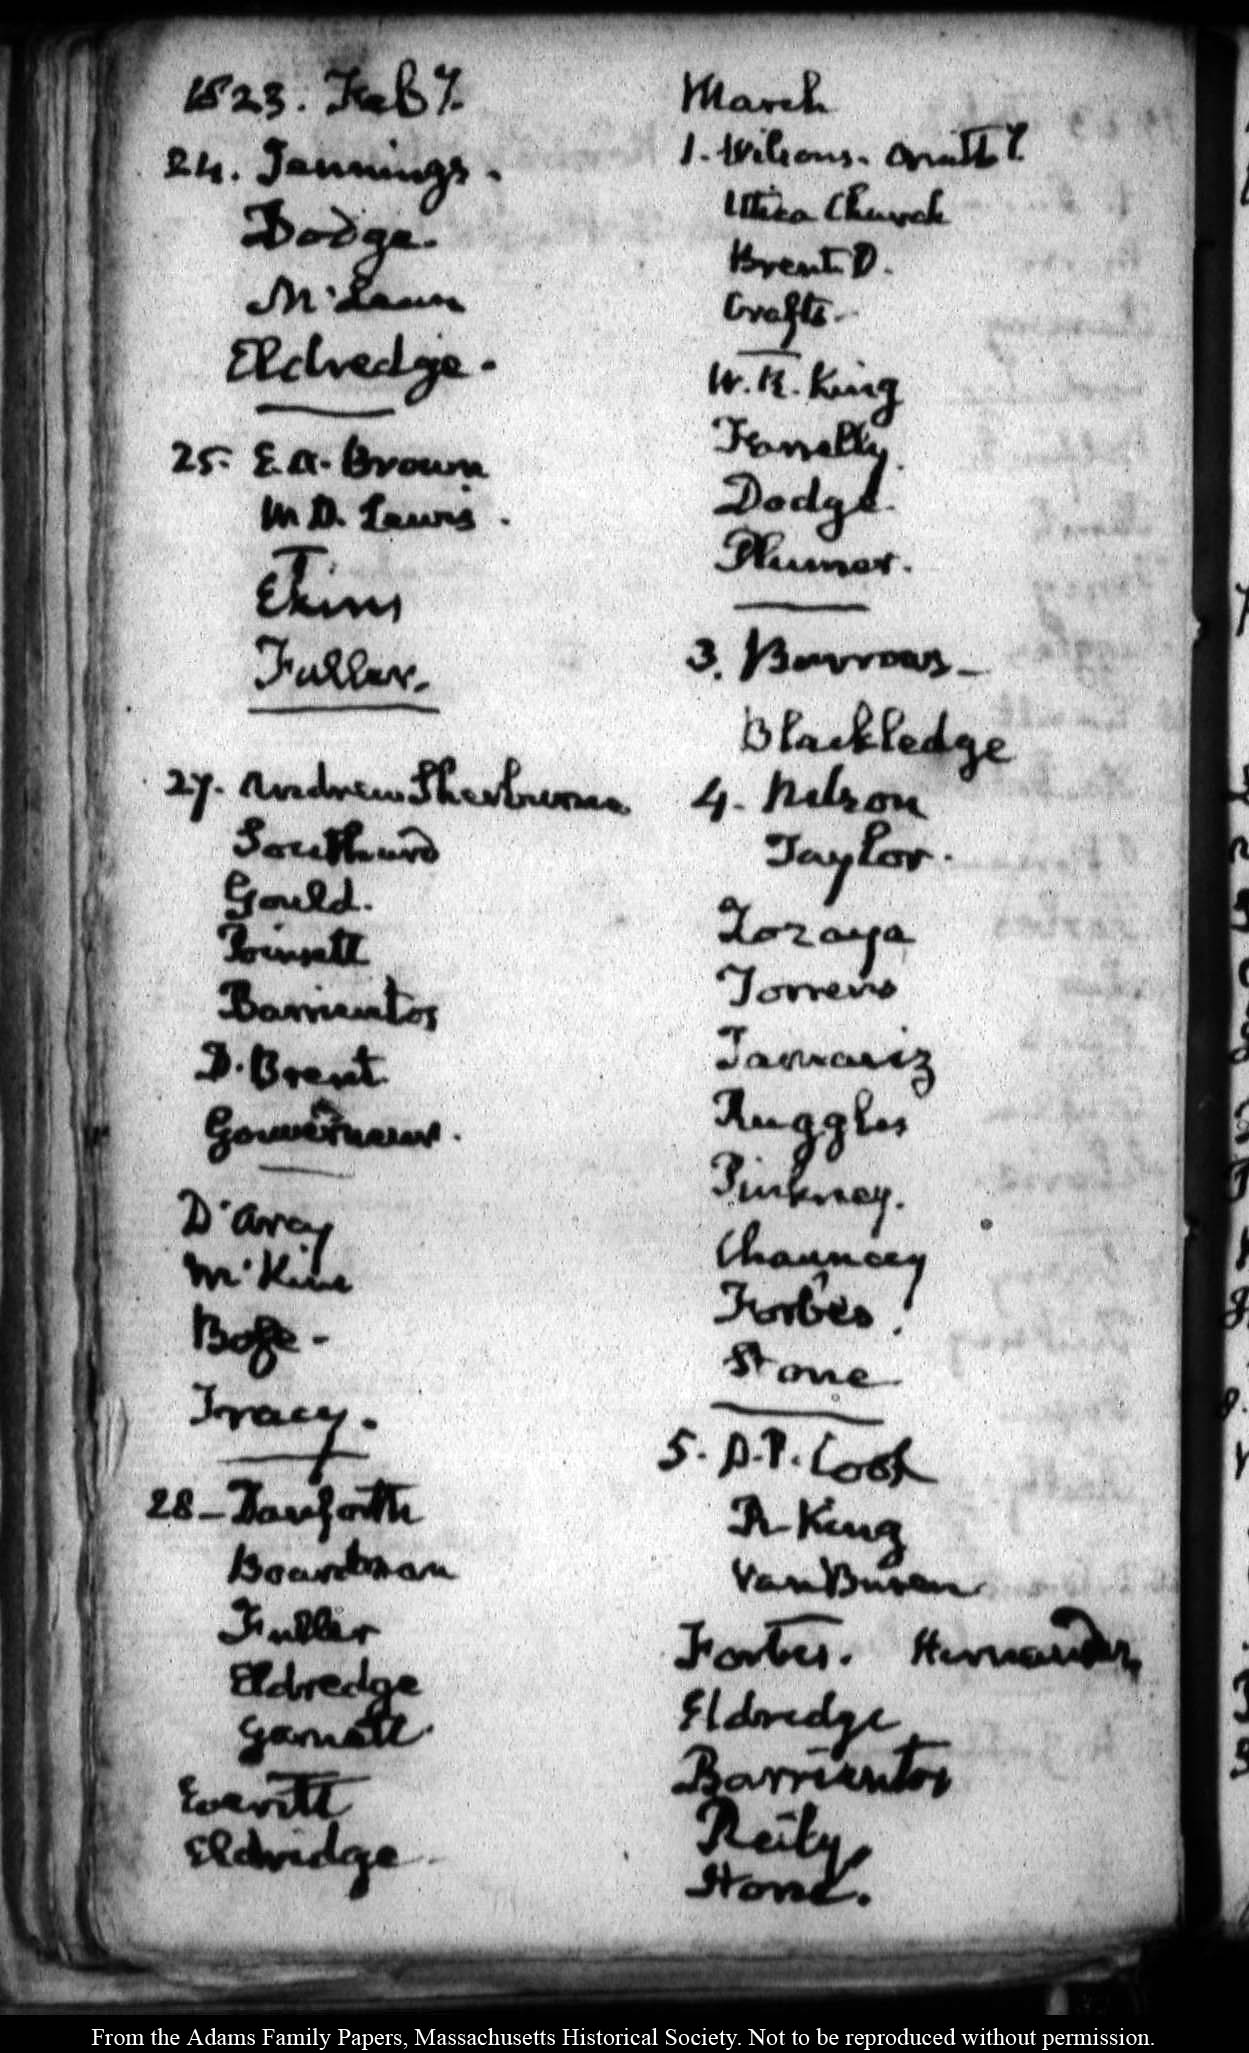 1823. Feby.
24. Jennings.
Dodge.
McLean
Eldredge.
25. E. A. Brown
W D. Lewis.
Ekins
Fuller.
27. Andrew Sherburne
Southard
Gould.
Poinsett
Barrientos
D. Brent
Gouverneur.
D'Arcy
McKim
Boze-
Tracy.
28- Danforth
Boardman
Fuller
Eldredge
Garnett.
Everett
Eldridge
March
1. Wilsons. omittd.
Utica Church
Brent. D.
Crafts-
W. R. King
Farrelly.
Dodge.
Plumer.
3. Burrows-
Blackledge
4. Nelson
Taylor.
Zozaya
Torrens
Ruggles
Pinkney.
Chauncey
Forbes.
Stone
5. D. P. Cook
R. King
Van Buren
Forbes. Hernandez
Eldredge
Barrientos
Reily.
Hone.
From the Adams Family Papers, Massachusetts Historical Society. Not to be reproduced without permission.